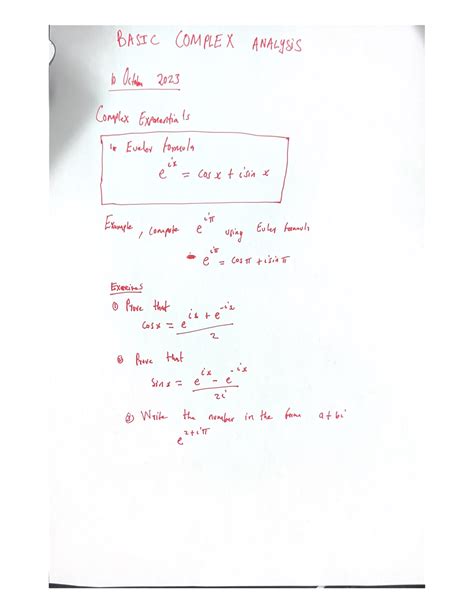 BASIC COMPLEX ANALYSIS
10 October 2023
Complex Exponentials
Euler formula
e^{ix} = cos x + i sin x
Example, compute e^{iπ} using Euler formula
e^{iπ} = cos π + i sin π
Exercises
① Prove that
cos x = \frac{e^{ix} + e^{-ix}}{2}
② Prove that
sin x = \frac{e^{ix} - e^{-ix}}{2i}
③ Write the number in the form a + bi
e^{2+iπ}